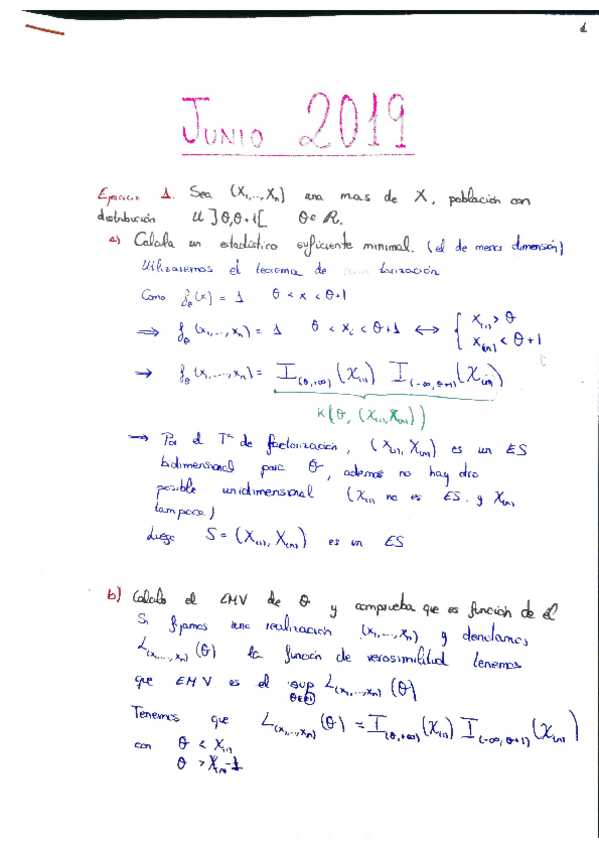 1
JUNIO 2019
Ejercicio 1. Sea (X₁,...,Xₙ) una mas de X, población con
distribución U]θ,θ+1[ θ∈R.
a) Calcula un estadístico suficiente minimal. (el de menor dimensión)
Utilizaremos el teorema de factorización
Como f_θ(x) = 1 θ < x < θ+1
⟹ f_θ(x₁,...,xₙ) = 1 θ < xᵢ < θ+1 ⟷ { X₍₁₎ > θ
X₍ₙ₎ < θ+1
→ f_θ(x₁,...,xₙ) = I_(θ,+∞)(X₍₁₎) I_(-∞,θ+1)(X₍ₙ₎)
K(θ,(X₍₁₎,X₍ₙ₎))
→ Por el Tª de factorización, (X₍₁₎,X₍ₙ₎) es un ES
bidimensional para θ, ademas no hay otro
posible unidimensional (X₍₁₎ no es ES y X₍ₙ₎
tampoco.)
Luego S = (X₍₁₎, X₍ₙ₎) es un ES
b) Calcula el EMV de θ y comprueba que es función de él
Si fijamos una realización (x₁,...,xₙ) y denotamos
L_(x₁,...,xₙ)(θ) la función de verosimilitud tenemos
que EMV es el sup L_(x₁,...,xₙ)(θ)
Tenemos que L_(x₁,...,xₙ)(θ) = I_(θ,+∞)(X₍₁₎) I_(-∞,θ+1)(X₍ₙ₎)
con θ < X₍₁₎
θ > X₍ₙ₎-1